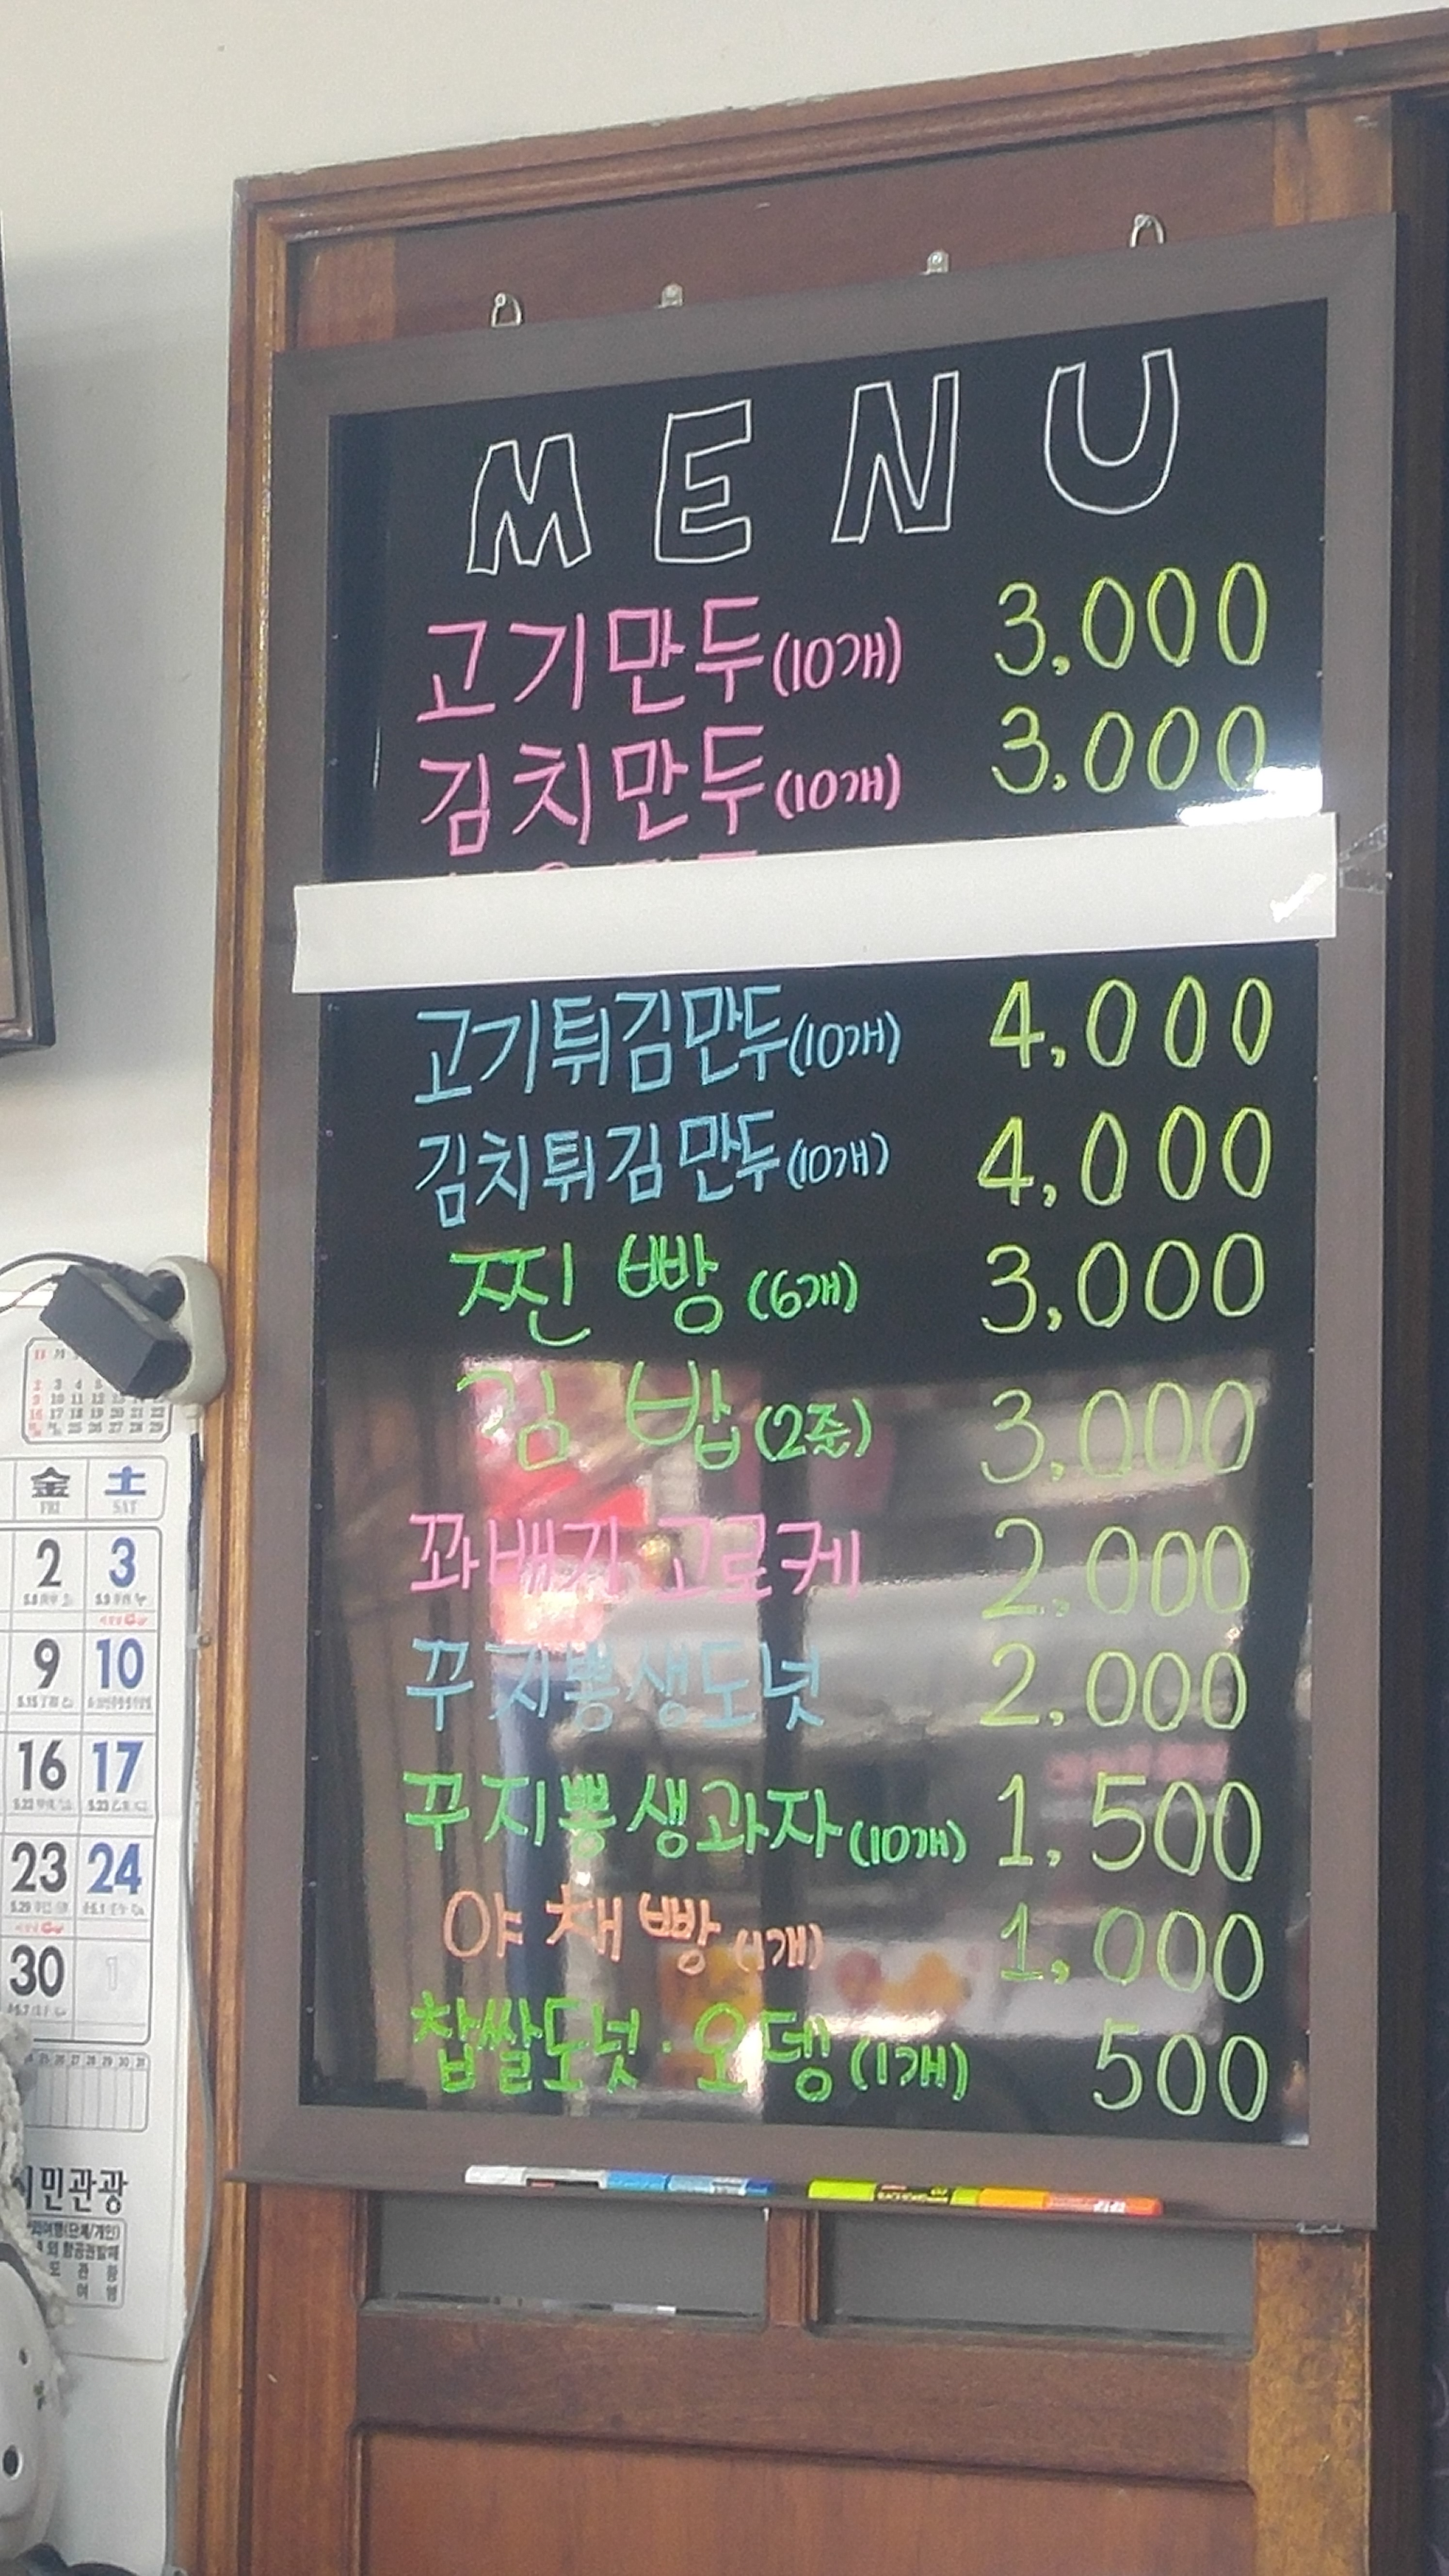 MENU
고기만두(10개) 3,000
김치만두(10개) 3,000
고기튀김만두(10개) 4,000
김치튀김만두(10개) 4,000
찐빵(6개) 3,000
김밥(2줄) 3,000
꽈배기 고로케 2,000
꾸지뽕생도넛 2,000
꾸지뽕생과자(10개) 1,500
야채빵(1개) 1,000
찹쌀도넛·오뎅(1개) 500
金 土
FRI SAT
2 3
9 10
16 17
23 24
30 1
민관광